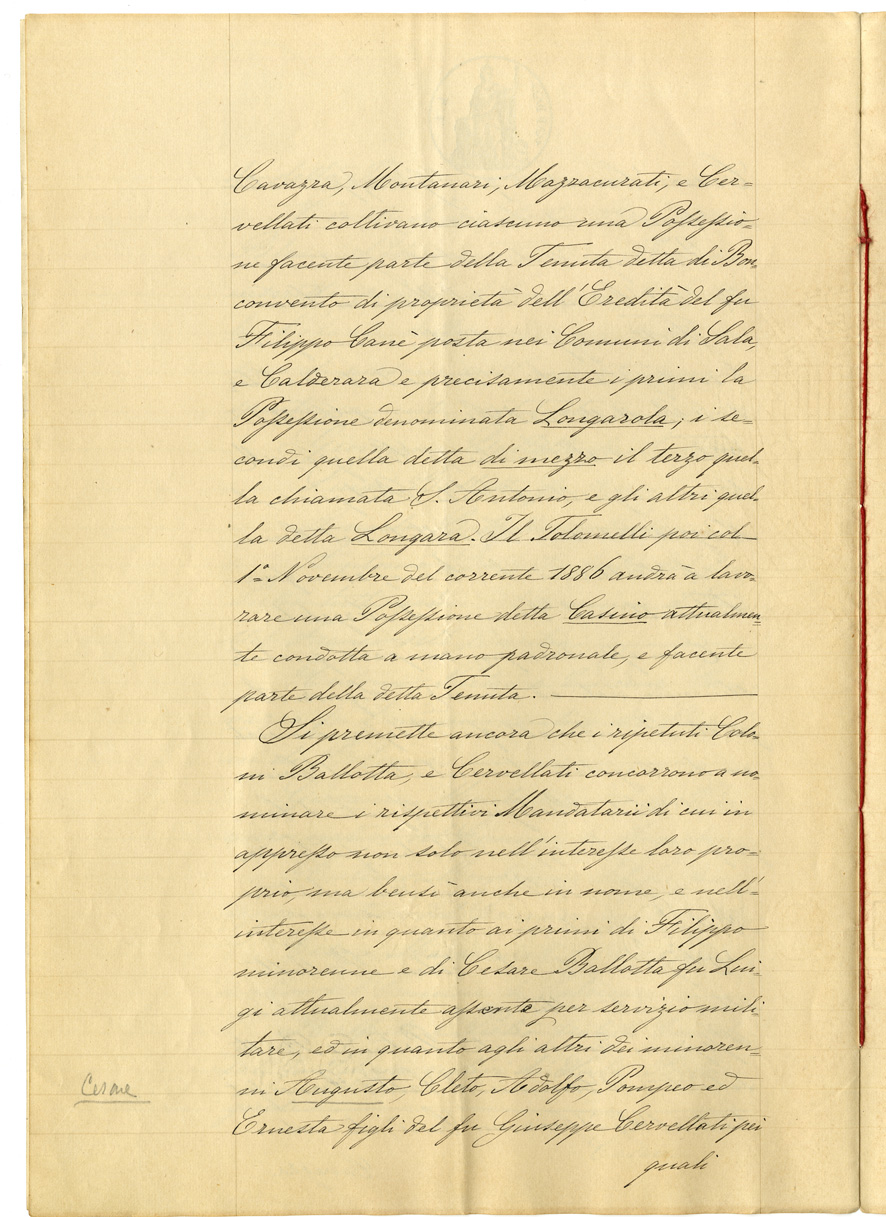 Cavazza, Montanari, Mazzacurati, e Cer=
vellati coltivano ciascuno una Possessio=
ne facente parte della Tenuta detta di Bon=
convento di proprietà dell'Eredità del fu
Filippo Canè posta nei Comuni di Sala,
e Calderara e precisamente i primi la
Possessione denominata Longarola; i se=
condi quella detta di mezzo il terzo quel=
la chiamata S. Antonio, e gli altri quel=
la detta Longara. Il Tolomelli poi col
1º Novembre del corrente 1886 andrà a lavo=
rare una Possessione detta Casino attualmen=
te condotta a mano padronale, e facente
parte della detta Tenuta.
Si premette ancora che i ripetuti Colo=
ni Ballotta, e Cervellati concorrono a no=
minare i rispettivi Mandatarii di cui in
appresso non solo nell'interesse loro pro=
prio, ma bensì anche in nome, e nell'=
interesse in quanto ai primi di Filippo
minorenne e di Cesare Ballotta fu Lui=
gi attualmente assente per servizio mili=
tare, ed in quanto agli altri dei minoren=
ni Augusto, Cleto, Adolfo, Pompeo ed
Cesare
Ernesta figli del fu Giuseppe Cervellati pei
quali